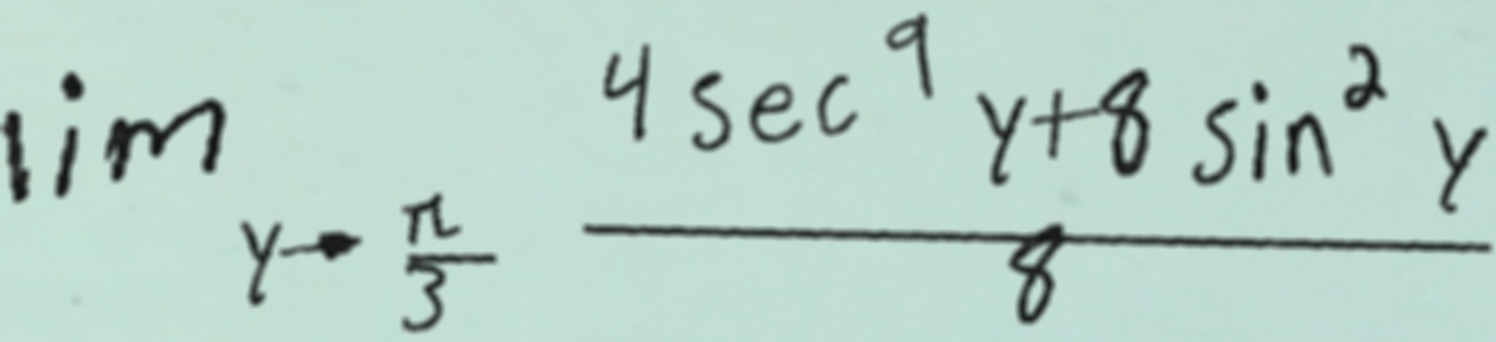 lim y→π/3 (4 sec^9 y + 8 sin^2 y)/8